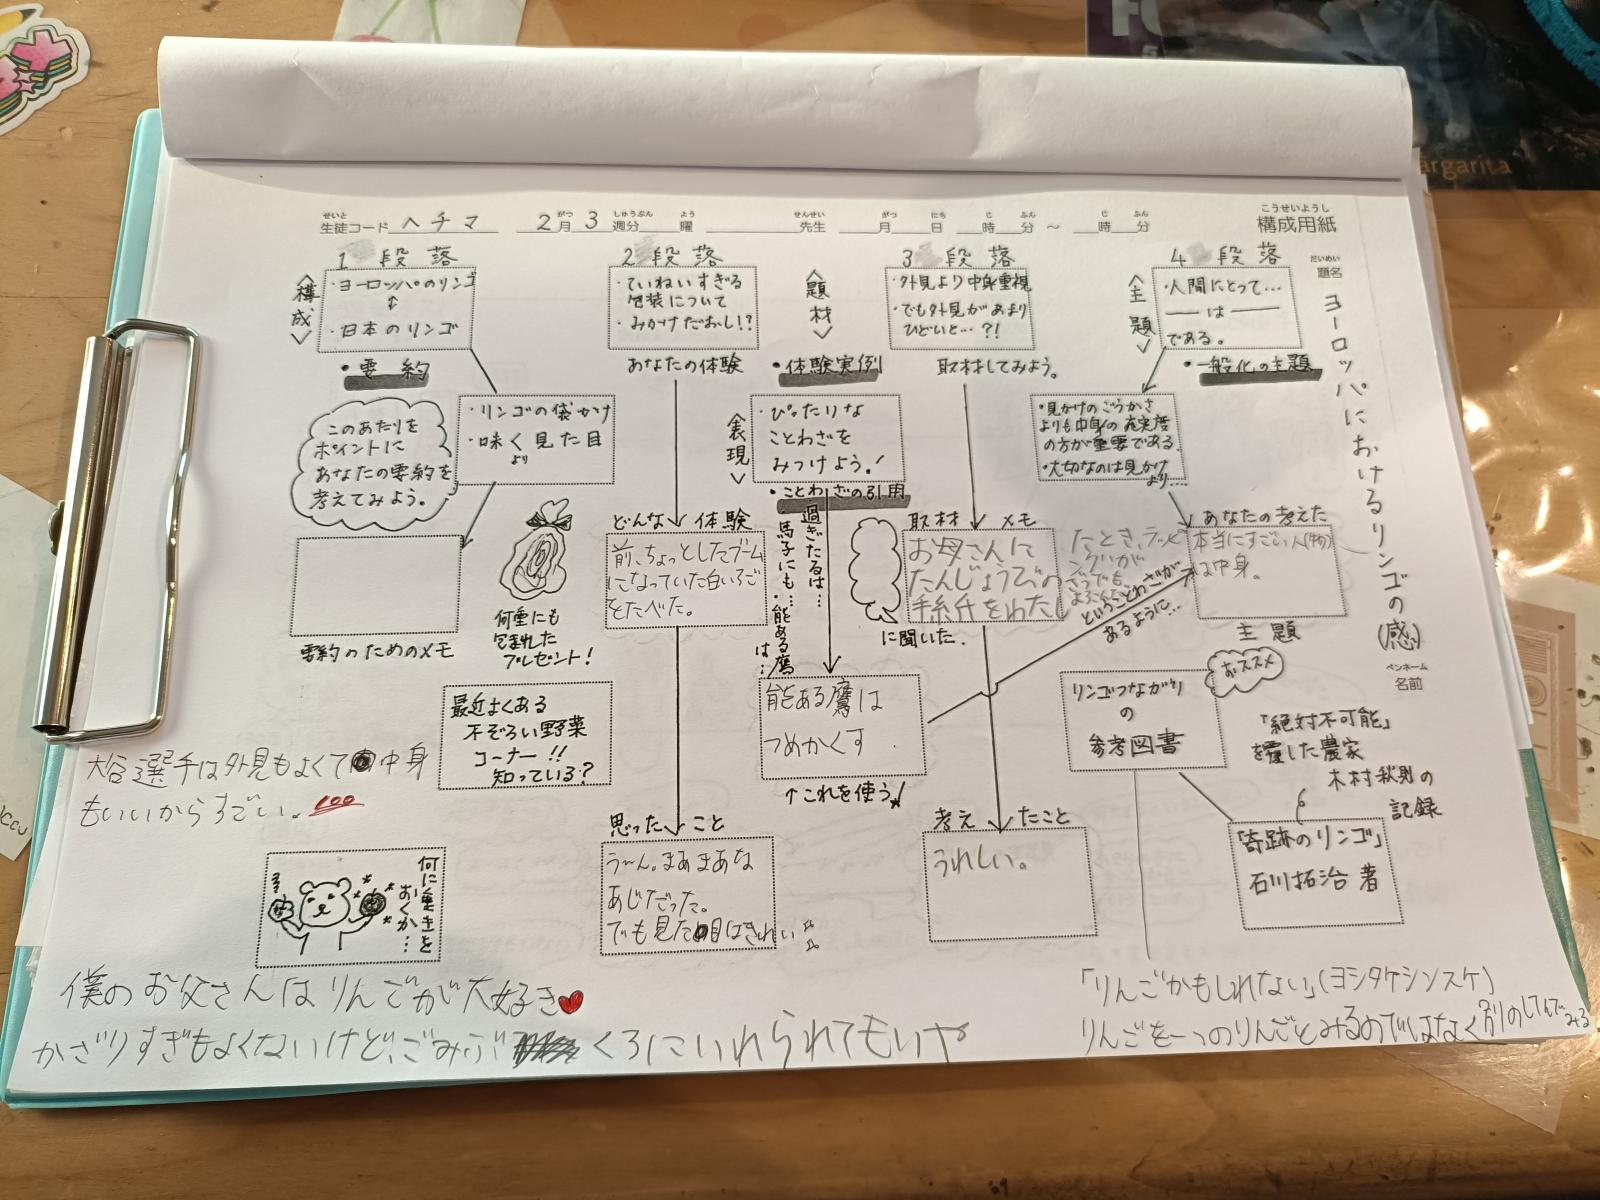 構成用紙
こうせいようし
せいと
生徒コード ヘチマ
がつ しゅうぶん よう
2月 3週分 曜
せんせい
先生
がつ にち じ ふん じ ふん
月 日 時 分 ~ 時 分
だいめい
題名
ヨーロッパにおけるリンゴの(感)
ペンネーム
名前
1 段落
<構成>
・ヨーロッパのリンゴ
↕
・日本のリンゴ
・要約
・リンゴの袋かけ
・味く見た目
より
このあたりを
ポイントに
あなたの要約を
考えてみよう。
要約のためのメモ
何重にも
包まれた
プレゼント!
最近よくある
不ぞろい野菜
コーナー!!
知っている?
2 段落
・ていねいすぎる
包装について
・みかけだおし!?
あなたの体験
どんな 体験
前、ちょっとしたブーム
になっていた白いちご
をたべた。
思った こと
う〜ん。まあまあな
あじだった。
でも見た目はきれい
<題材>
・体験実例
<表現>
・ぴったりな
ことわざを
みつけよう!
・ことわざの引用
過ぎたるは…
・馬子にも…
・能ある鷹
は…
能ある鷹は
つめかくす
↑これを使う!
3 段落
・外見より中身重視
・でも外見があまり
ひどいと…?!
取材してみよう。
取材 メモ
お母さんに
たんじょうびの
手紙をわたし
たとき、ラッピ
ングが
に聞いた.
ということわざが
あるように…
考え たこと
うれしい。
<主題>
4 段落
・人間にとって…
― は ―
である。
・一般化の主題
・見かけのごうかさ
よりも中身の充実度
の方が重要である.
・大切なのは見かけ
より…
あなたの考えた
本当にすごい人(物)
は中身。
主題
おススメ
リンゴつながり
の
参考図書
「絶対不可能」
を覆した農家
木村秋則の
記録
「奇跡のリンゴ」
石川拓治 著
大谷選手は外見もよくて中身
もいいからすごい。100
何に重きを
おくか…
僕のお父さんはりんごが大好き
かざりすぎもよくないけど、ごみぶくろにいれられてもいや
「りんごかもしれない」(ヨシタケシンスケ)
りんごを一つのりんごとみるのではなく別のしてんでみる
árgarita